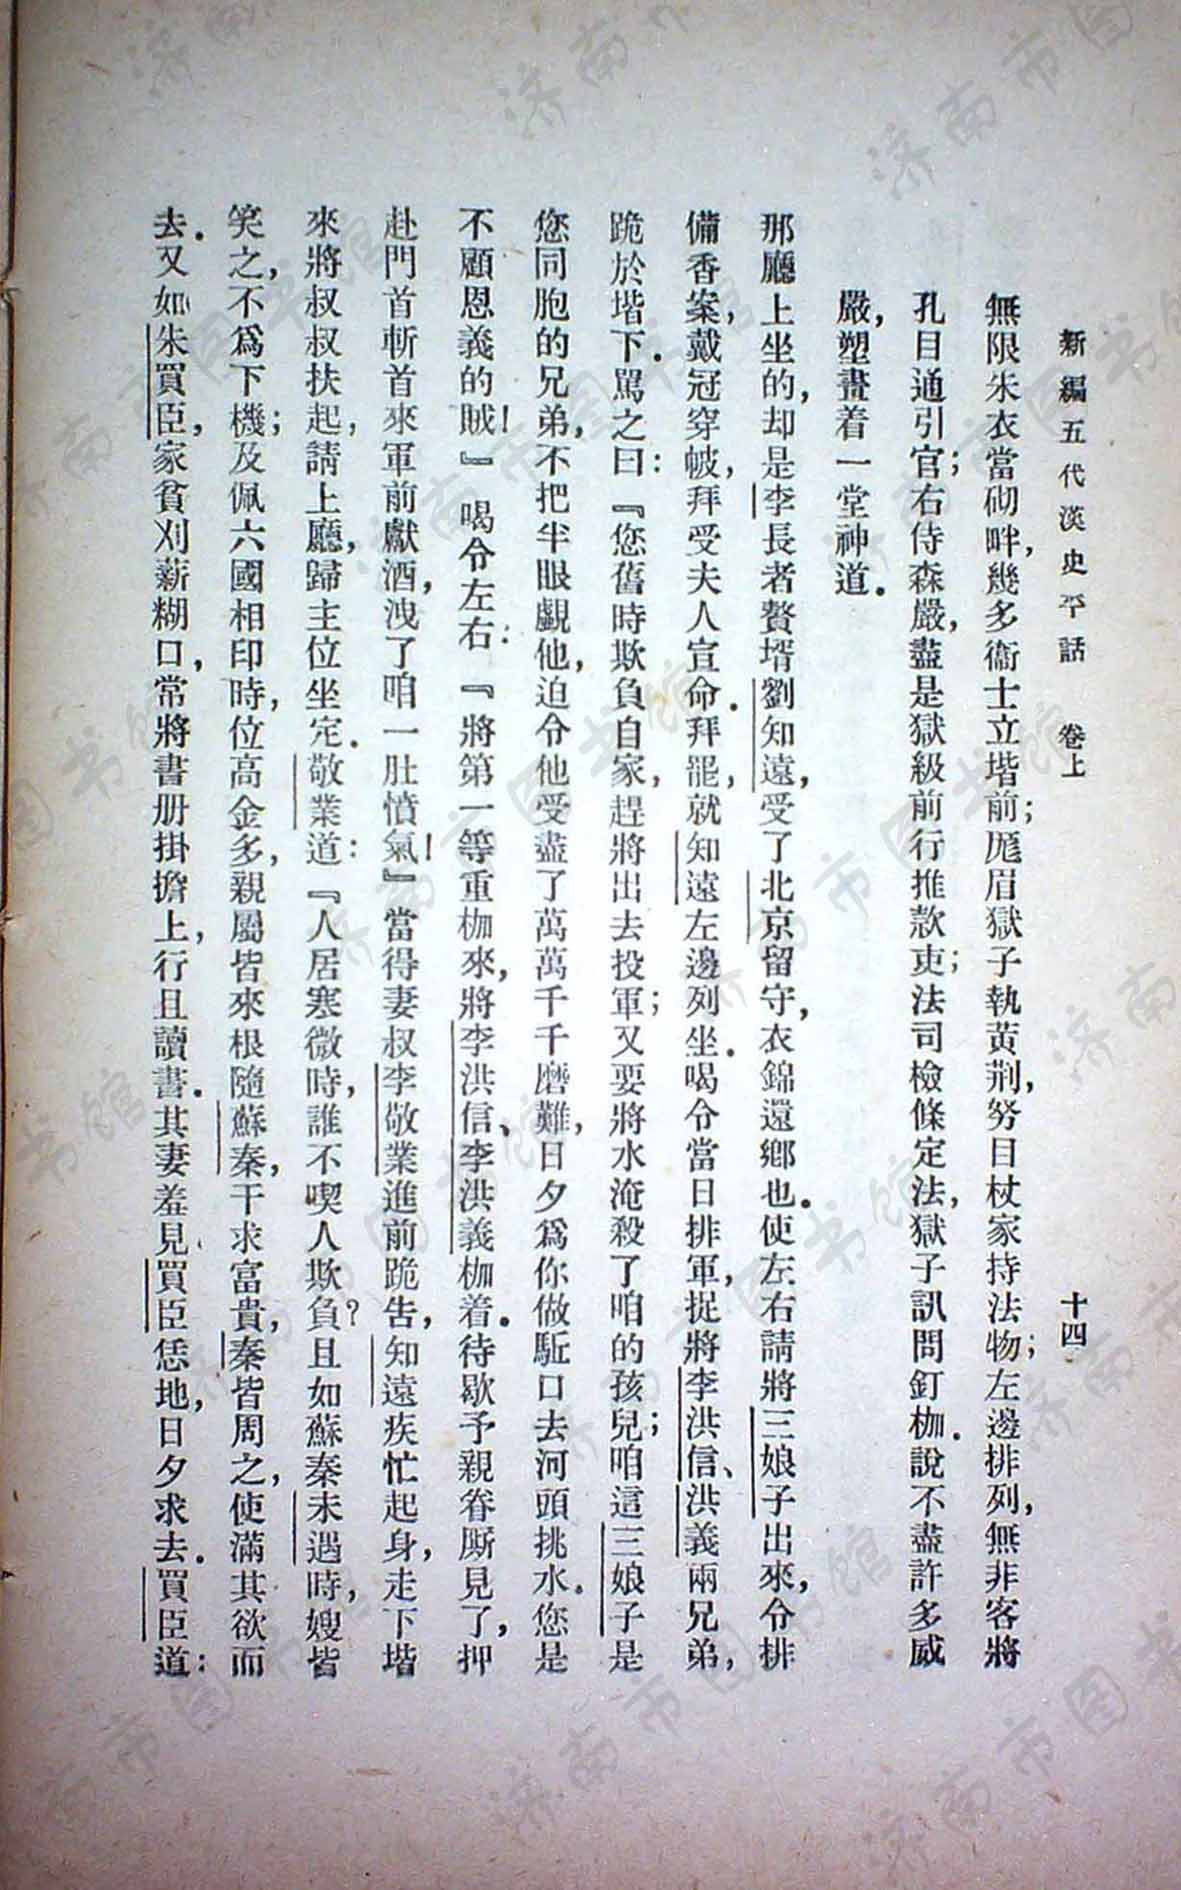 新編五代漢史平話　卷上　十四
無限朱衣當砌畔，幾多衞士立堦前；厖眉獄子執黃荆，努目杖家持法物；左邊排列，無非客將
孔目通引官；右侍森嚴，盡是獄級前行推款吏；法司檢條定法，獄子訊問釘枷．說不盡許多威
嚴，塑畫着一堂神道．
那廳上坐的，却是李長者贅壻劉知遠，受了北京留守，衣錦還鄉也．使左右請將三娘子出來，令排
備香案，戴冠穿帔，拜受夫人宣命．拜罷，就知遠左邊列坐．喝令當日排軍，捉將李洪信、洪義兩兄弟，
跪於堦下．罵之曰：『您舊時欺負自家，趕將出去投軍；又要將水淹殺了咱的孩兒；咱這三娘子是
您同胞的兄弟，不把半眼覷他，迫令他受盡了萬萬千千磨難，日夕爲你做駈口去河頭挑水．您是
不顧恩義的賊！』喝令左右：『將第一等重枷來，將李洪信、李洪義枷着．待歇予親眷厮見了，押
赴門首斬首來軍前獻酒，洩了咱一肚憤氣！』當得妻叔李敬業進前跪告，知遠疾忙起身，走下堦
來將叔叔扶起，請上廳，歸主位坐定．敬業道：『人居寒微時，誰不喫人欺負？且如蘇秦未遇時，嫂皆
笑之，不爲下機；及佩六國相印時，位高金多，親屬皆來根隨蘇秦，干求富貴，秦皆周之，使滿其欲而
去．又如朱買臣，家貧刈薪糊口，常將書册掛擔上，行且讀書．其妻羞見買臣恁地，日夕求去．買臣道：